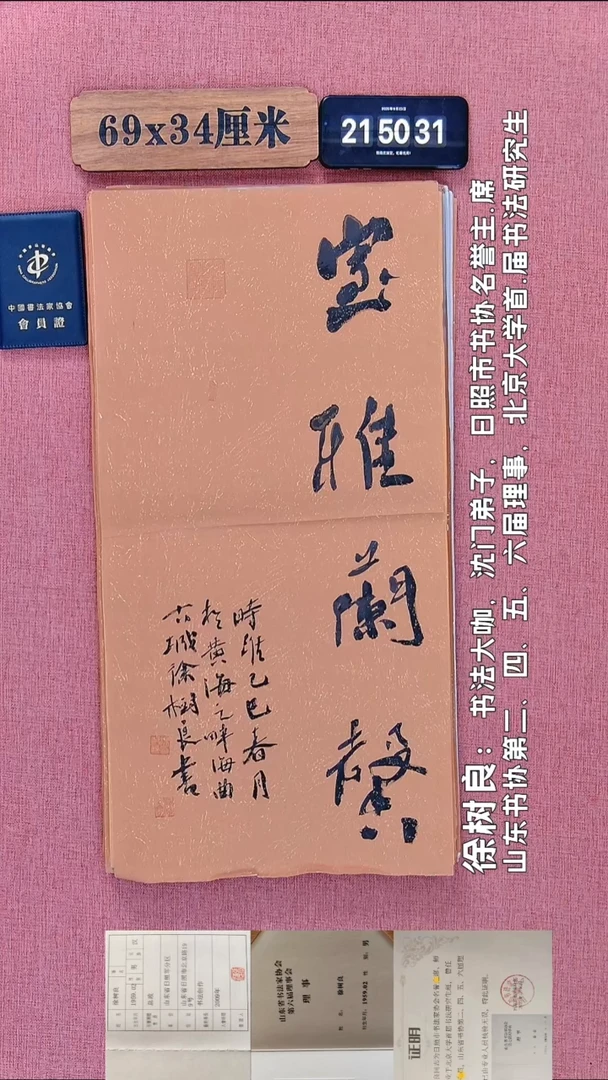 69x34厘米
21 50 31
中國書法家協會
會員證
室雅蘭馨
時維乙巳春月
於黄海之畔海曲
古城徐樹良書
徐树良：书法大咖，沈门弟子，日照市书协名誉主.席
山东书协第二、四、五、六届理事，北京大学首.届书法研究生
山东省书法家协会
第六届理事会
理事
证明